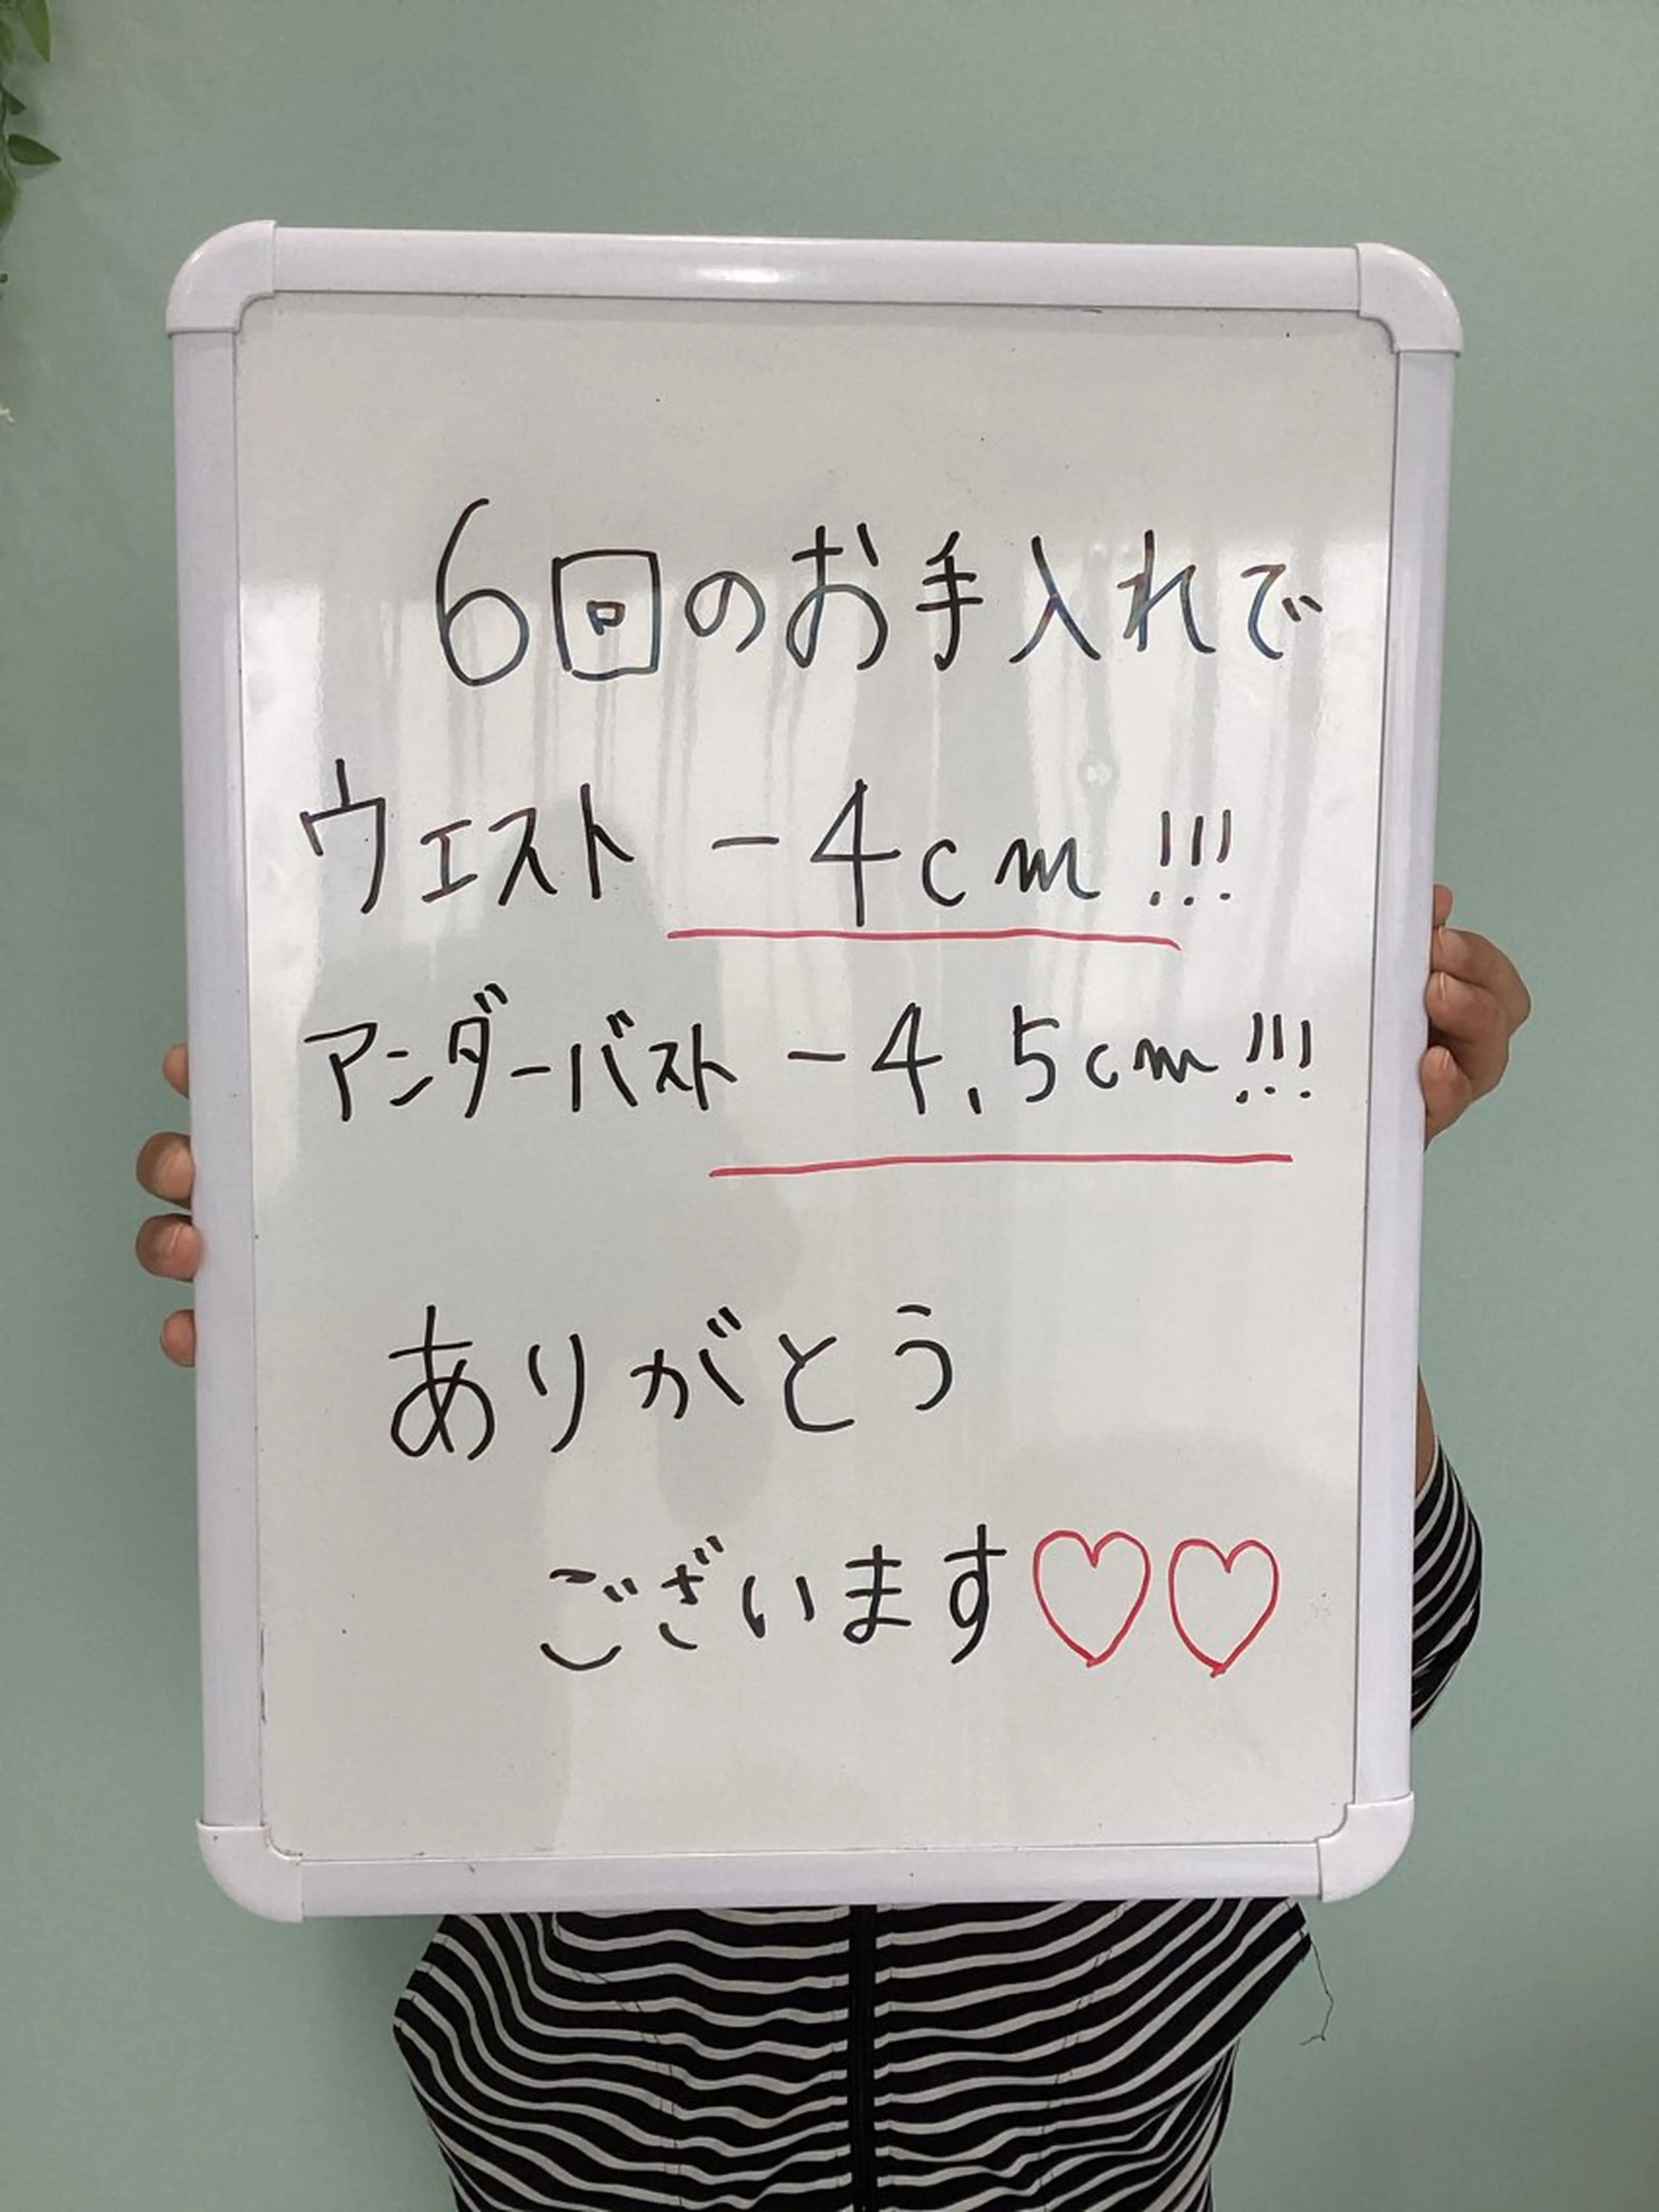 6回のお手入れで
ウエスト -4cm!!!
アンダーバスト -4.5cm!!!
ありがとう
ございます♡♡